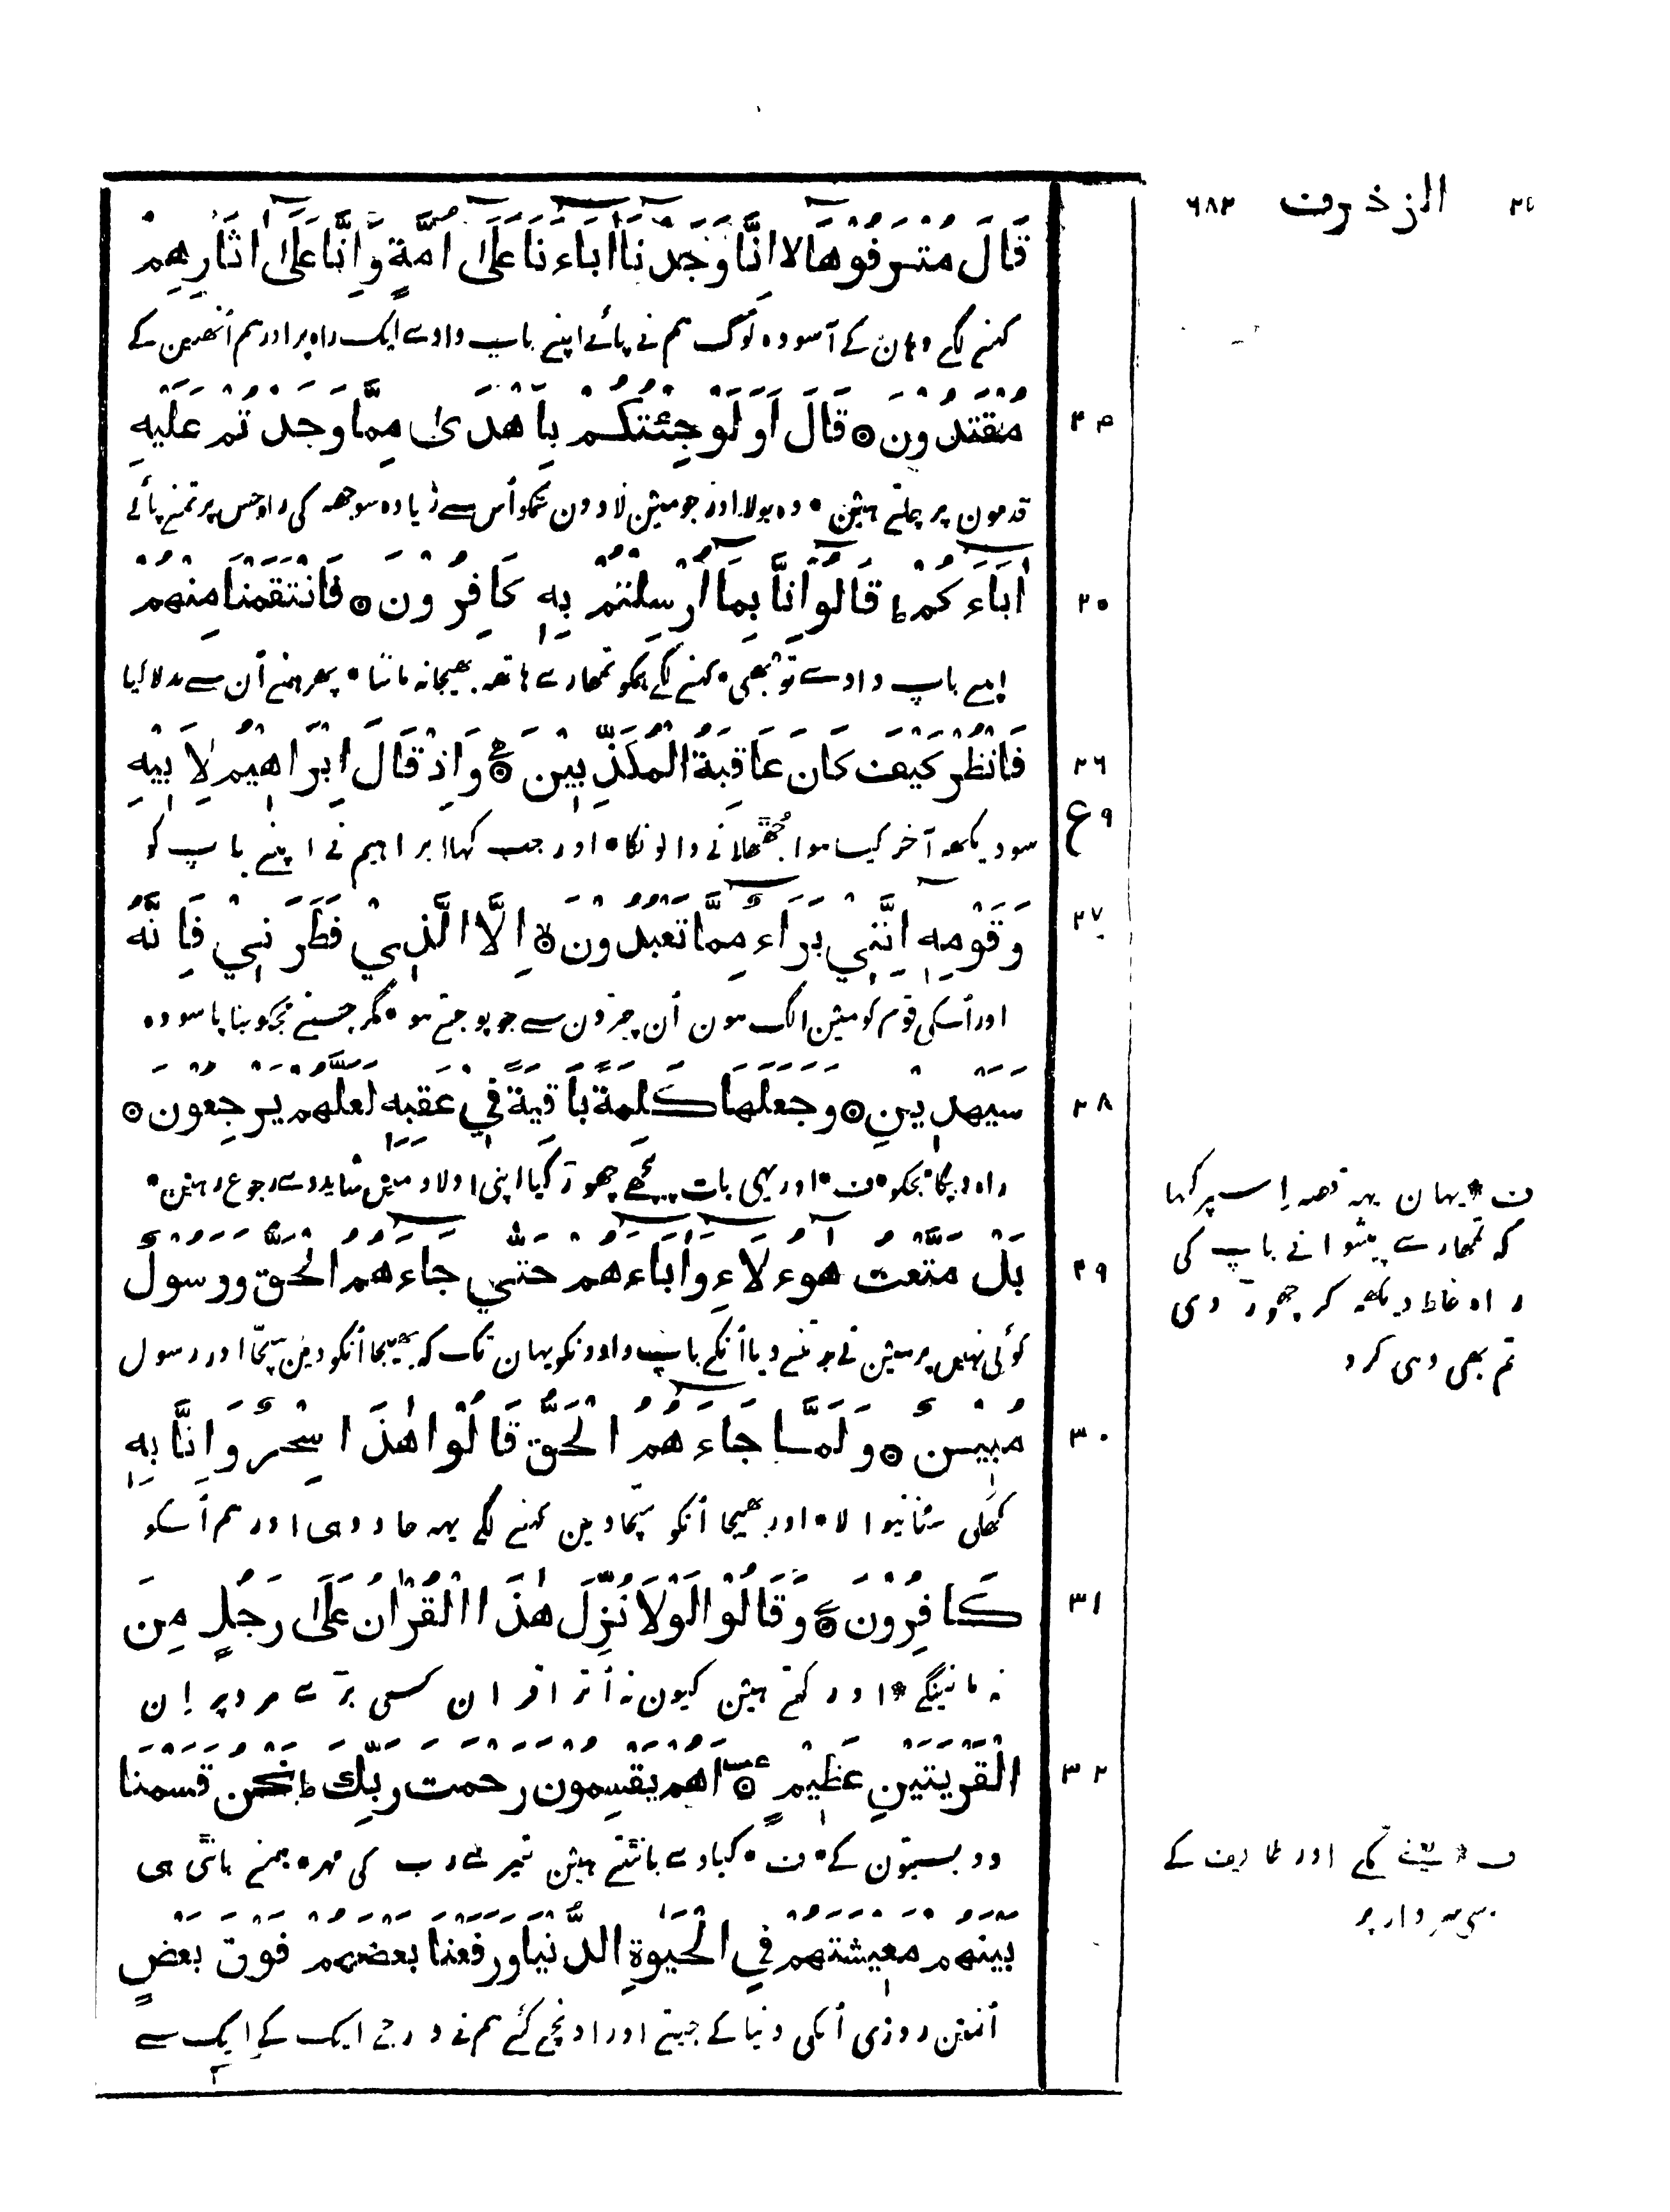 ٢٥ الزخرف ٦٨٢
قَالَ مُتْرَفُوْهَا لا اِنَّا وَجَدْنَا اٰبَاءَنَا عَلٰى اُمَّةٍ وَّاِنَّا عَلٰى اٰثَارِهِمْ
کہنے لگے وہان کے آسودہ لوگ ہم نے پائے اپنے باپ دادے ایک راہ پر اور ہم اُنھین کے
مُقْتَدُوْنَ ۞ قَالَ اَوَلَوْ جِئْتُكُمْ بِاَهْدٰى مِمَّا وَجَدْتُمْ عَلَيْهِ
٢٤
قدمون پر چلتے ہین • وہ بولا اور جو مین لا دون تمکو اُس سے زیادہ سوجھہ کی راہ جس پر تمنے پائے
اٰبَاءَكُمْ ط قَالُوْا اِنَّا بِمَا اُرْسِلْتُمْ بِهٖ كَافِرُوْنَ ۞ فَانْتَقَمْنَا مِنْهُمْ
٢٥
اپنے باپ دادے تو بھی • کہنے لگے ہمکو تمھارے ہاتھہ بھیجا نہ ماننا • پھر ہمنے اُن سے بدلا لیا
فَانْظُرْ كَيْفَ كَانَ عَاقِبَةُ الْمُكَذِّبِيْنَ ۞ وَاِذْ قَالَ اِبْرَاهِيْمُ لِاَبِيْهِ
٢٦
ع ٩
سو دیکھہ آخر کیسا ہوا جُھٹھلانے والونکا • اور جب کہا ابراہیم نے اپنے باپ کو
وَقَوْمِهٖ اِنَّنِيْ بَرَاءٌ مِمَّا تَعْبُدُوْنَ ۞ اِلَّا الَّذِيْ فَطَرَنِيْ فَاِنَّهٗ
٢٧
اور اُسکی قوم کو مین الگ ہون اُن چیزون سے جو پوجتے ہو • مگر جسنے مجکو بنایا سو وہ
سَيَهْدِيْنِ ۞ وَجَعَلَهَا كَلِمَةً بَاقِيَةً فِيْ عَقِبِهٖ لَعَلَّهُمْ يَرْجِعُوْنَ ۞
٢٨
راہ دیگا مجکو • ف • اور یہی بات پیچھے چھوڑ گیا اپنی اولاد مین شاید وے رجوع رہین •
بَلْ مَتَّعْتُ هٰؤُلَاءِ وَاٰبَاءَهُمْ حَتّٰى جَاءَهُمُ الْحَقُّ وَرَسُوْلٌ
٢٩
کوئی نہین پر مین نے برتنے دیا اُنکے باپ دادونکو یہان تک کہ بھیجا اُنکو دین سچّا اور رسول
مُبِيْنٌ ۞ وَلَمَّا جَاءَهُمُ الْحَقُّ قَالُوْا هٰذَا سِحْرٌ وَاِنَّا بِهٖ
٣٠
کھلی سُنانیوالا • اور بھیجا اُنکو سچّا دین کہنے لگے یہہ جادو ہی اور ہم اُسکو
كَافِرُوْنَ ۞ وَقَالُوْا لَوْلَا نُزِّلَ هٰذَا الْقُرْاٰنُ عَلٰى رَجُلٍ مِنَ
٣١
نہ مانینگے * اور کہتے ہین کیون نہ اُترا قران کسی بڑے مرد پر اِن
الْقَرْيَتَيْنِ عَظِيْمٍ ۞ اَهُمْ يَقْسِمُوْنَ رَحْمَتَ رَبِّكَ ط نَحْنُ قَسَمْنَا
٣٢
دو بستیون کے • ف • کیا وے بانٹتے ہین تیرے رب کی مہر • ہمنے بانٹی ہی
بَيْنَهُمْ مَعِيْشَتَهُمْ فِي الْحَيٰوةِ الدُّنْيَا وَرَفَعْنَا بَعْضَهُمْ فَوْقَ بَعْضٍ
اُنمین روزی اُنکی دنیا کے جیتے اور اونچے کئے ہم نے درجے ایک کے ایک سے
ف * یہان یہہ قصہ اِسپر کہا
کہ تمھارے پیشوا نے باپ کی
راہ غلط دیکھہ کر چھوڑ دی
تم بھی وہی کرو
ف * یعنے مکے اور طایف کے
کسی سردار پر